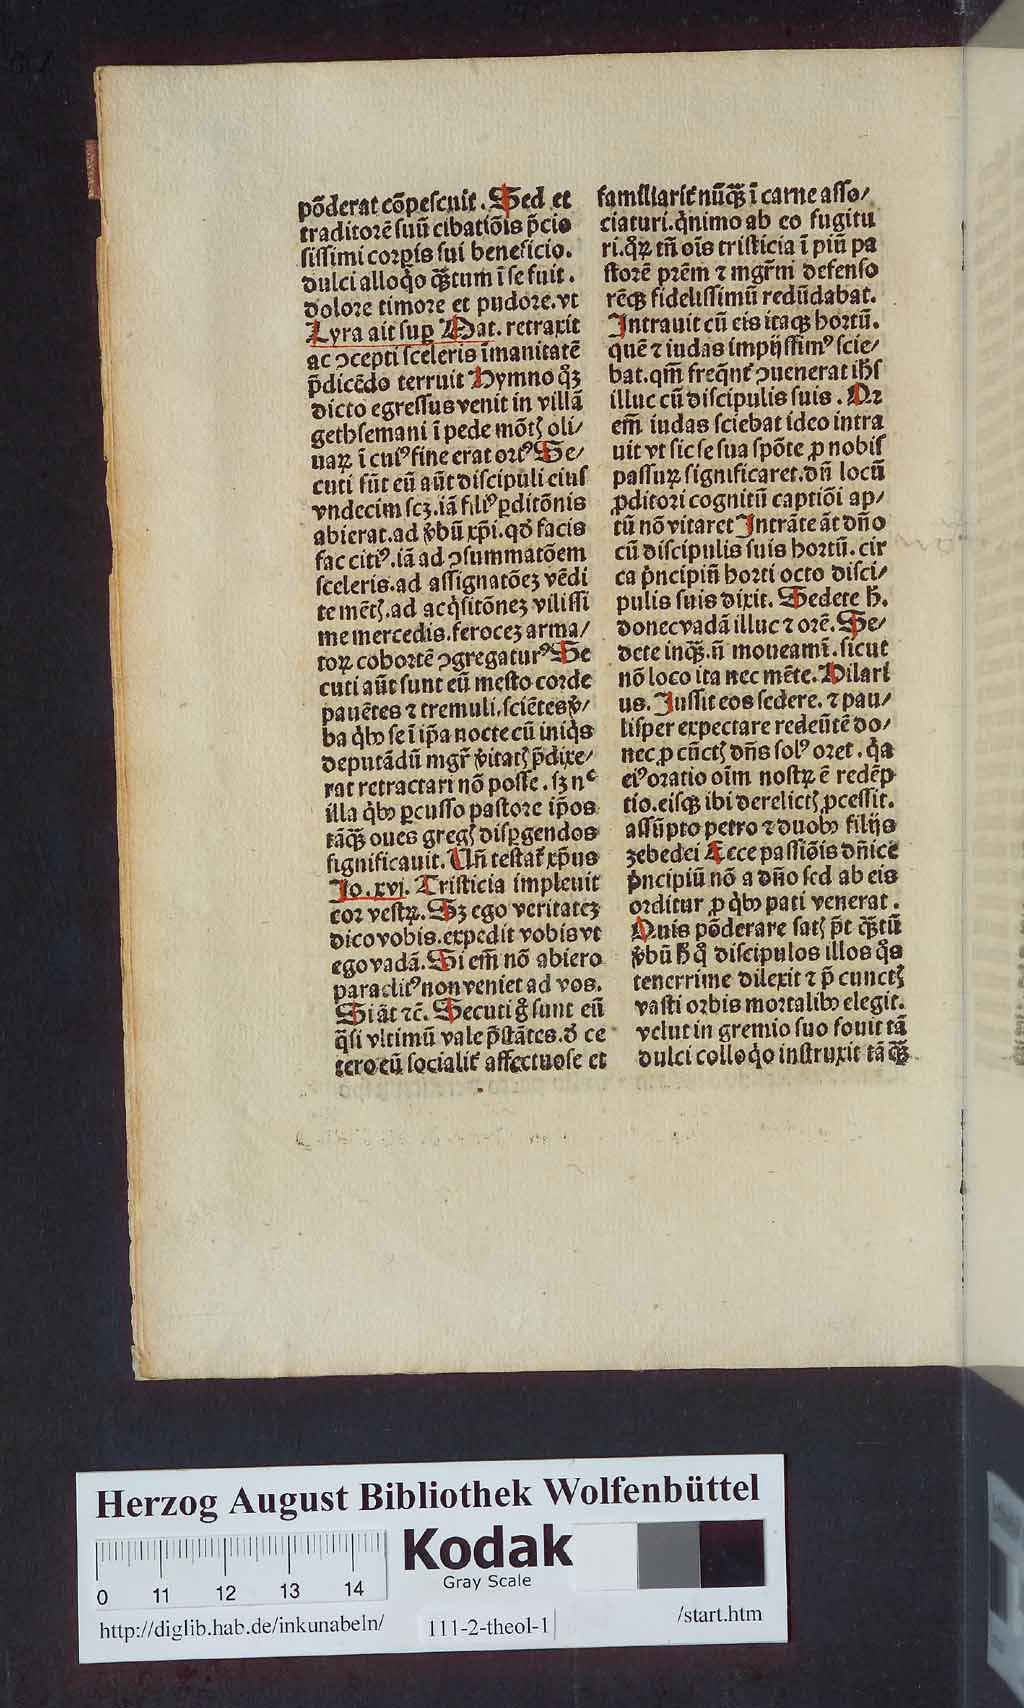 põderat cõpeſcuit. Sed et
traditorẽ ſuũ cibatiõis p̃cio
ſiſſimi corꝑis ſui beneficio.
dulci alloq̊o qᷓꝫtum ĩ ſe fuit.
dolore timore et pudore. vt
Lyra ait ſuꝑ Mat. retraxit
ac ↄcepti ſceleris ĩmanitatẽ
p̃dicẽdo terruit Hymno qͦꝫ
dicto egreſſus venit in villã
gethſemani ĩ pede mõtꝭ oli/
uaꝝ ĩ cuiꝰ fine erat ortꝰ Se/
cuti ſũt eũ aũt diſcipuli eiuſ
vndecim ſcꝫ. iã filiꝰ ꝑditõnis
abierat. ad v̓bũ xp̃i. qd̓ facis
fac citiꝰ. iã ad ↄſummatõem
ſceleris. ad aſſignatõeꝫ vẽdi
te mẽtꝭ. ad acq̊ſitõneꝫ viliſſi
me mercedis. feroceꝫ arma/
toꝝ cohortẽ ↄgregaturꝰ Se
cuti aũt ſunt eũ meſto corde
pauẽtes ⁊ tremuli. ſciẽtes v̓/
ba q̊bꝫ ſe ĩ ip̃a nocte cũ iniq̊s
deputãdũ mgr̃ v̓itatꝭ p̃dixe/
rat retractari nõ poſſe. ſꝫ nᵉ
illa q̊bꝫ ꝑcuſſo paſtore ip̃os
tãqᷓꝫ oues gregꝭ diſꝑgendos
ſignificauit. Uñ teſtat̃ xp̃us
Jo. xvj. Triſticia impleuit
cor veſtꝝ. Sꝫ ego veritateꝫ
dico vobis. expedit vobis vt
ego vadã. Si em̃ nõ abiero
paraclitꝰ non veniet ad vos.
Si ãt ⁊c̃. Secuti g̊ ſunt eũ
q̃ſi vltimũ vale p̃ſtãtes. d̓ ce
tero eũ ſocialit̓ affectuoſe et
familiarit̓ nũqᷓꝫ ĩ carne aſſo/
ciaturi. q̊nimo ab eo fugitu
ri. qͦꝝ tñ oĩs triſticia ĩ piũ pa
ſtorẽ prẽm ⁊ mgr̃m defenſo
rẽqꝫ fideliſſimũ redũdabat.
Intrauit cũ eis itaqꝫ hortũ.
quẽ ⁊ iudas impijſſimꝰ ſcie/
bat. qm̃ freq̃nt̓ ↄuenerat ihſ̃
illuc cũ diſcipulis ſuis. Qꝛ
em̃ iudas ſciebat ideo intra
uit vt ſic ſe ſua ſpõte ꝓ nobiſ
paſſuꝝ ſignificaret. dũ locũ
ꝓditori cognitũ captiõi ap/
tũ nõ vitaret Intrãte ãt dño
cũ diſcipulis ſuis hortũ. cir
ca p̊ncipiũ horti octo diſci/
pulis ſuis dixit. Sedete h̓.
donec vadã illuc ⁊ orẽ. Se/
dete inqᷓꝫ. ñ moueamĩ. ſicut
nõ loco ita nec mẽte. Hilari
us. Juſſit eos ſedere. ⁊ pau/
liſper expectare redeũtẽ do/
nec ꝓ cũctꝭ dñs ſolꝰ oret. q̊a
eiꝰ oratio oĩm noſtꝝ ẽ redẽp
tio. eiſqꝫ ibi derelictꝭ ꝓceſſit.
aſſũpto petro ⁊ duobꝫ filijs
zebedei Ecce paſſiõis dñice
p̊ncipiũ nõ a dño ſed ab eis
orditur ꝓ q̊bꝫ pati venerat.
Quis põderare ſatꝭ p̃t qᷓꝫtũ
v̓bũ h̓ qͥ diſcipulos illos qͦs
tenerrime dilexit ⁊ p̃ cunctꝭ
vaſti orbis mortalibꝫ elegit.
velut in gremio ſuo fouit tã
dulci colloq̊o inſtruxit tã qᷓꝫ
Herzog August Bibliothek Wolfenbüttel
Kodak
Gray Scale
0 11 12 13 14
http://diglib.hab.de/inkunabeln/ 111-2-theol-1 /start.htm